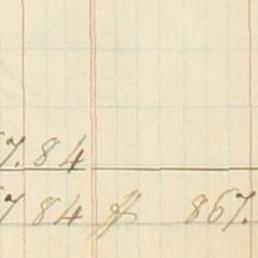 7.84
7 84 $ 867.